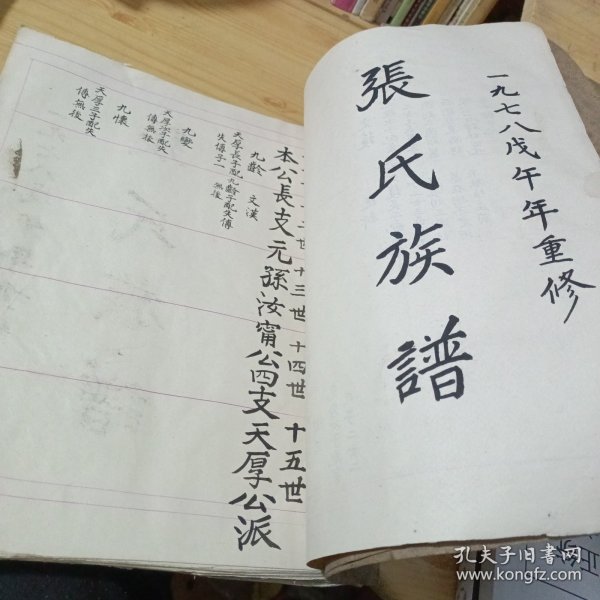 一九七八戊午年重修
張氏族譜
十二世 十三世 十四世 十五世
本公長支元孫汝甯公四支天厚公派
九齡 文漢
天厚長子配 九齡子配失傳
失傳子一 無後
九變
天厚次子配失
傳無後
九懷
天厚三子配失
傳無後
孔夫子旧书网
www.kongfz.com